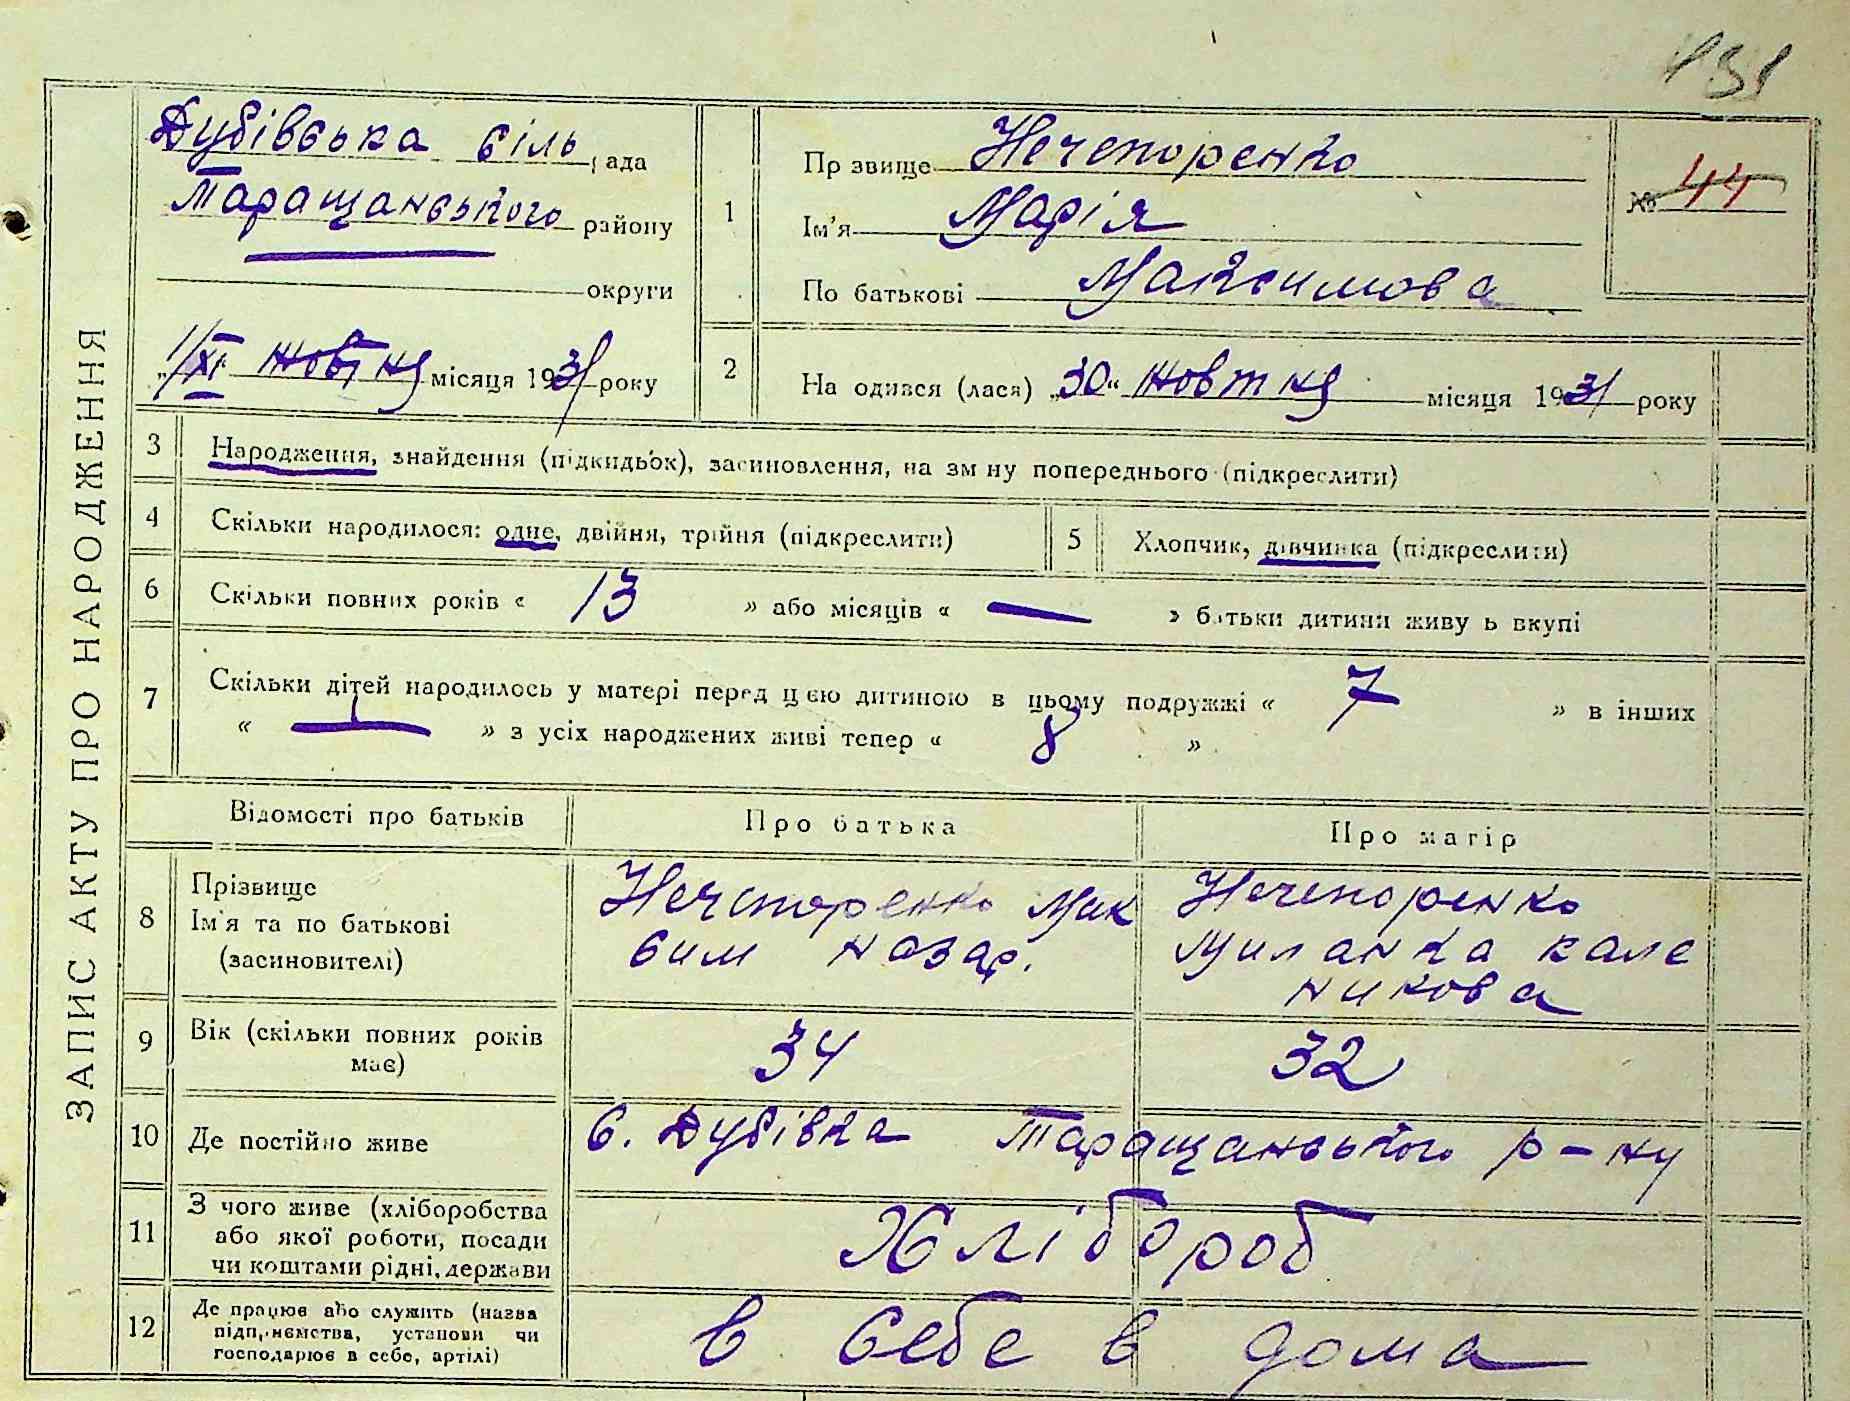 131
ЗАПИС АКТУ ПРО НАРОДЖЕННЯ
Дубівська сіль рада
Таращанського району
округи
1/XI жовтня місяця 1931 року
1
Прізвище Нечепоренко
Ім'я Марія
По батькові Максимова
№ 44
2
Народився (лася) „30“ жовтня місяця 1931 року
3 Народження, знайдення (підкидьок), засиновлення, на зміну попереднього (підкреслити)
4 Скільки народилося: одне, двійня, трійня (підкреслити)
5 Хлопчик, дівчинка (підкреслити)
6 Скільки повних років « 13 » або місяців « — » батьки дитини живуть вкупі
7 Скільки дітей народилось у матері перед цією дитиною в цьому подружжі « 7 » в інших
« — » з усіх народжених живі тепер « 8 »
Відомості про батьків Про батька Про матір
8 Прізвище
Ім'я та по батькові
(засиновителі)
Нечепоренко Мак
сим Назар.
Нечепоренко
Миланка Кале
никова
9 Вік (скільки повних років
має)
34 32
10 Де постійно живе с. Дубівка Таращанського р-ну
11 З чого живе (хліборобства
або якої роботи, посади
чи коштами рідні, держави
Хлібороб
12 Де працює або служить (назва
підприємства, установи чи
господарює в себе, артілі)
в себе в дома